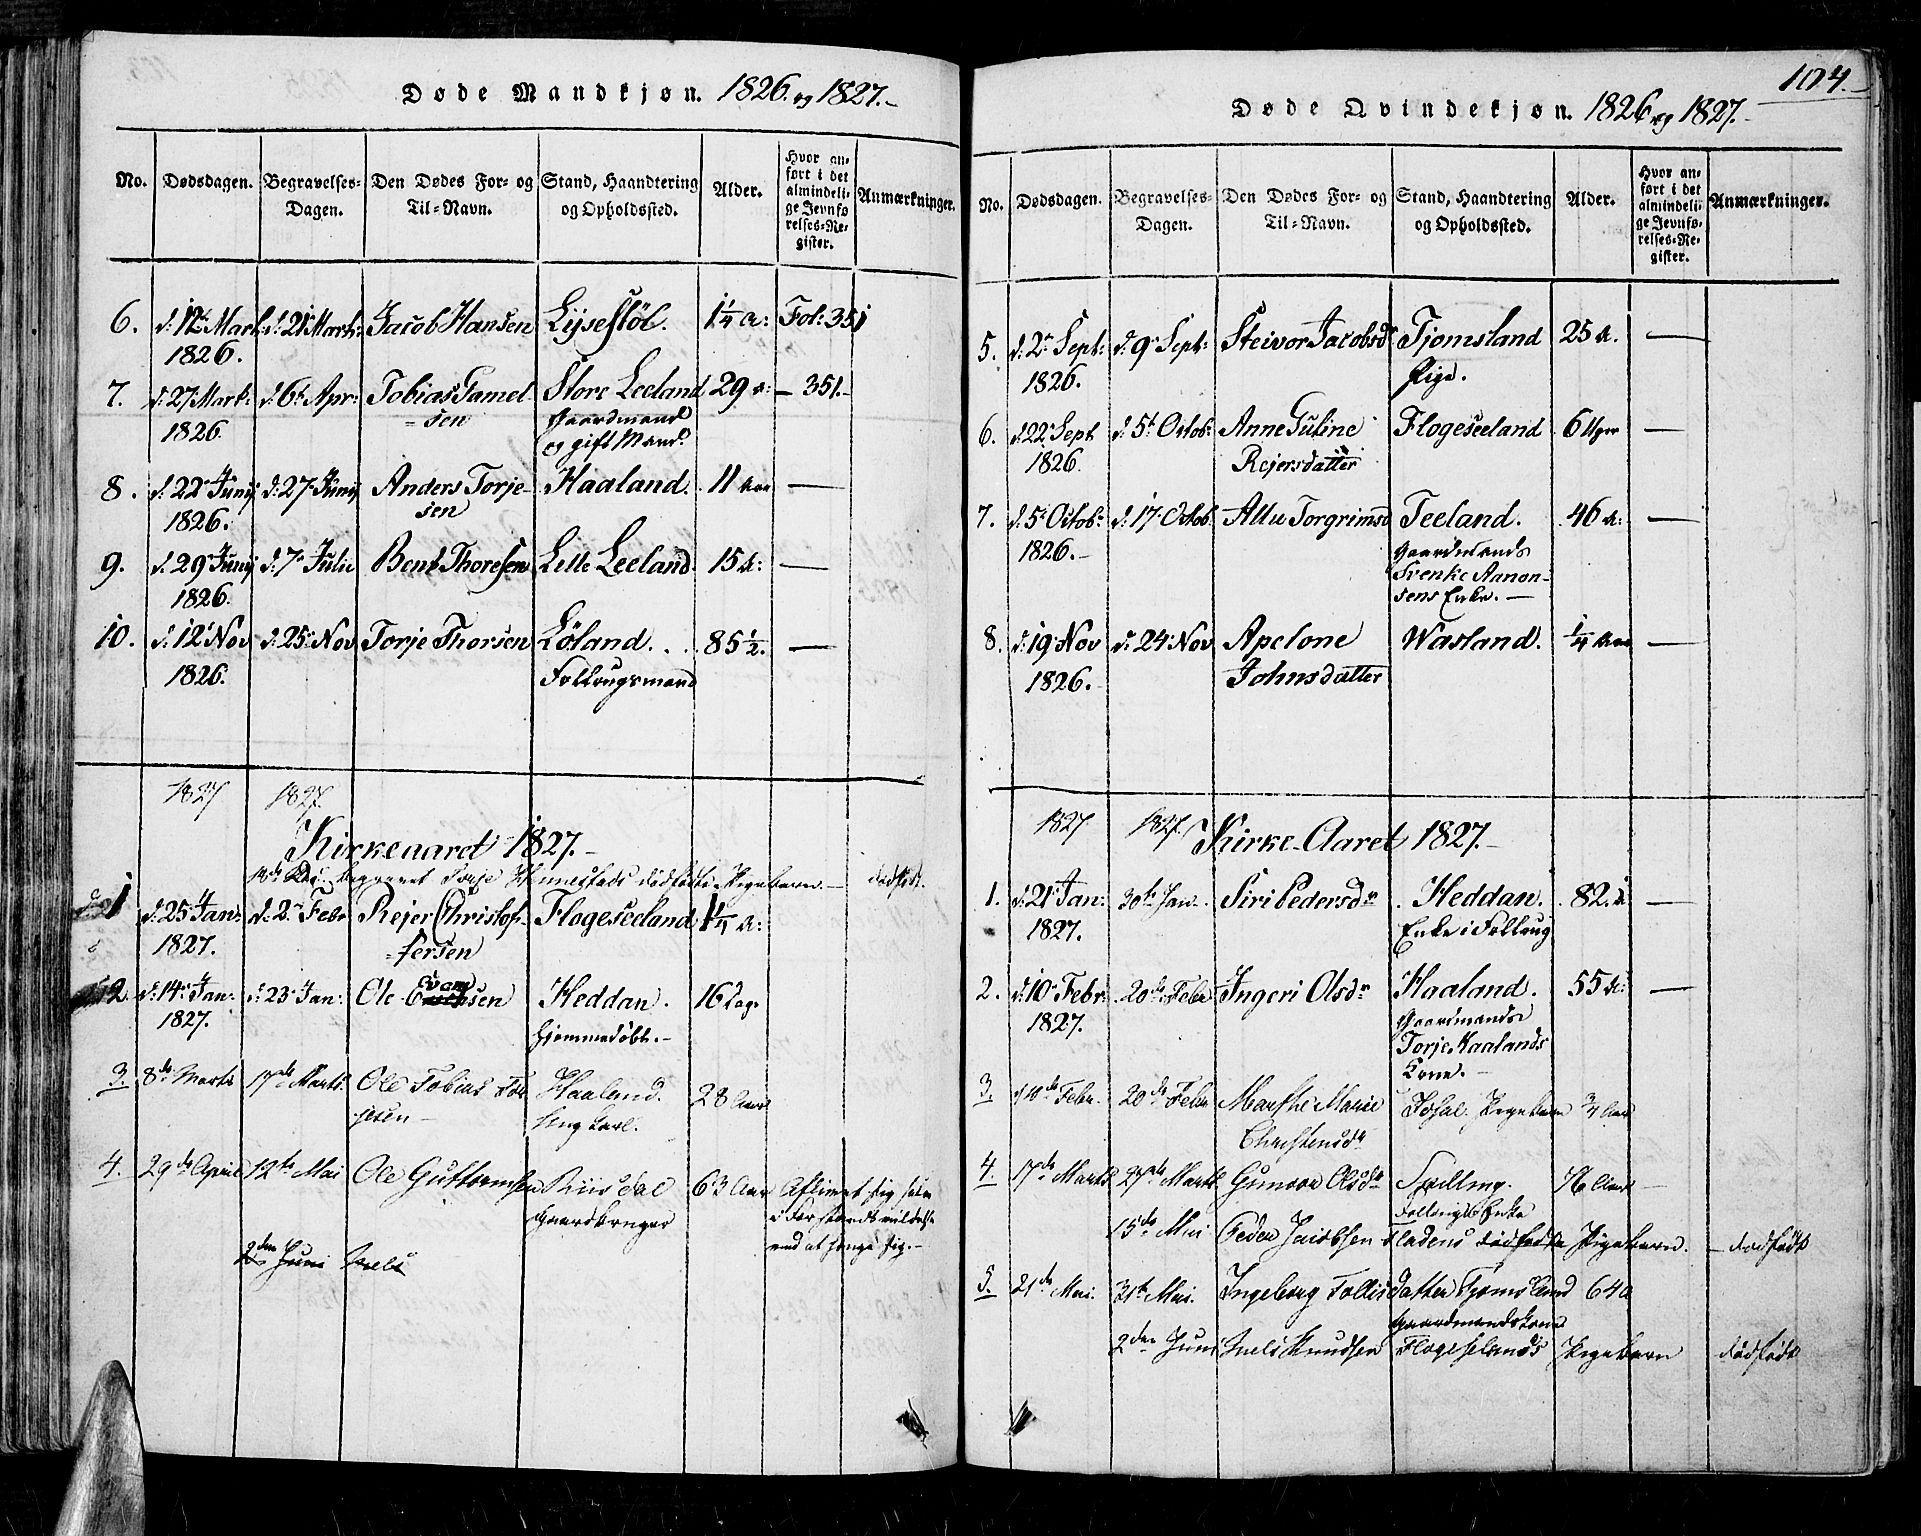 Døde Mandkjøn. 1826. og 1827.-
No. Dødsdagen. Begravelses-Dagen. Den Dødes For- og Til-Navn. Stand, Haandtering og Opholdssted. Alder. Hvor anført i det almindelige Jevnførelses-Register. Anmærkninger.
6. d: 12t Mart: d: 21 Mart: Jacob Hansen Lyseſtöl. 1¼ a: Fol: 351
1826.
7. d: 27 Mart: d: 6t Apr: Tobias Tamel- Store Leeland 29 a: — 351.-
1826. =sen Gaardmand
og gift Mand.
8. d: 22 Junij d: 27 Junij Anders Torje- Haaland. 11 Aar —
1826. sen
9. d: 29 Junij d: 7 Julii Bent Thoresen Lelle Leeland 15 A: —
1826.
10. d: 12 Nov d: 25 Nov Torje Thorsen Löland. 85½. —
1826. Follaugsmand
1827 1827.
Kirkeaaret 1827.-
begravet Torje Hinnestads dødfødte Pigebarn.- dødfødt.
1 d: 25 Jan: d: 2 Febr Rejer Christof- Flogeseeland 1¼ A:
1827. =fersen
2. d: 14 Jan: d: 23 Jan: Ole Evansen Heddan. 16 Dage
1827. hjemmedöbt.-
3. 8de Marts 17de Marts. Ole Tobias Tor Haaland. 28 Aar
jesen- Ung Karl.
4. 29de April 12te Mai Ole Guttormsen Riisdal 63 Aar Aflivet sig selv
Gaardbruger i Forstandsvildelse
ved at hænge sig.-
2den Juni Neels
104.
Døde Qvindekjøn. 1826 og 1827.-
No. Dødsdagen. Begravelses-Dagen. Den Dødes For- og Til-Navn. Stand, Haandtering og Opholdssted. Alder. Hvor anført i det almindelige Jevnførelses-Register. Anmærkninger.
5. d: 2 Sept: d: 9 Sept: Steivor Jacobsdr Tjomsland 25 A. —
1826. Pige.
6. d: 22 Sept d: 5t Octob: Anne Guline Flogeseeland 6 Uger —
1826. Rejersdatter
7. d: 5t Octob: d: 17 Octob Allu Torgrimsd Teeland. 46 A: —
1826.- Gaardmands
Svenke Aanon-
sens Enke.-
8. d: 19 Nov d: 24 Nov Apelone Wasland. ¼ Aar —
1826. Johnsdatter
1827. 1827.
Kirke-Aaret 1827.-
1. d: 21 Jan: 30te Jan. Siri Pedersdr Heddan. 82. A: —
1827. Enke i Follaug
2. d: 10 Febr: 20de Febr Ingeri Olsdr Haaland. 55 A: —
1827. Gaardmands
Torje Haalands
Kone.-
3. 10de Febr. 20de Febr Marthe Marie Josal. Pigebarn ¾ Aar
Christensdr
4. 17de Marts 27de Marts Gunvor Olsdr Spilling. 76 Aar —
Follaugs Enke
15de Mai Peder Jacobsen Fladens dødfødte Pigebarn. - dødfødt
5. 21de Mai. 31te Mai. Ingeborg Tollisdatter Tjomsland 64 a
Gaardmandskone
2den Juni Neels Knudsen Flogeselands Pigebarn dødfødt